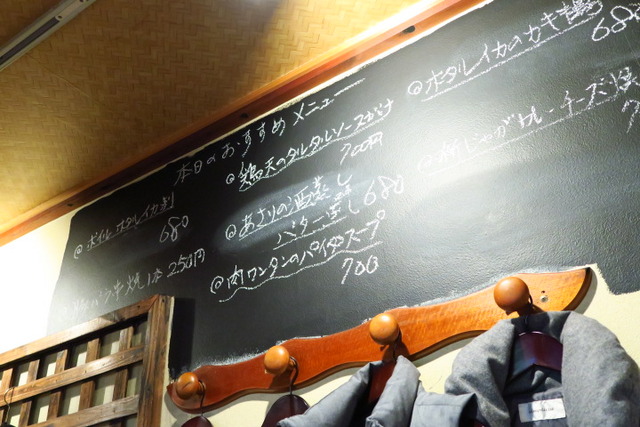 本日のおすすめメニュー
◎ボイルホタルイカ刺
680
牛焼1本250円
◎鶏天のタルタルソースがけ
700円
◎あさりの酒蒸し
バター蒸し680
◎肉ワンタンのパイタンスープ
700
◎ホタルイカのカキ揚
680
◎新じゃがカレーチーズ